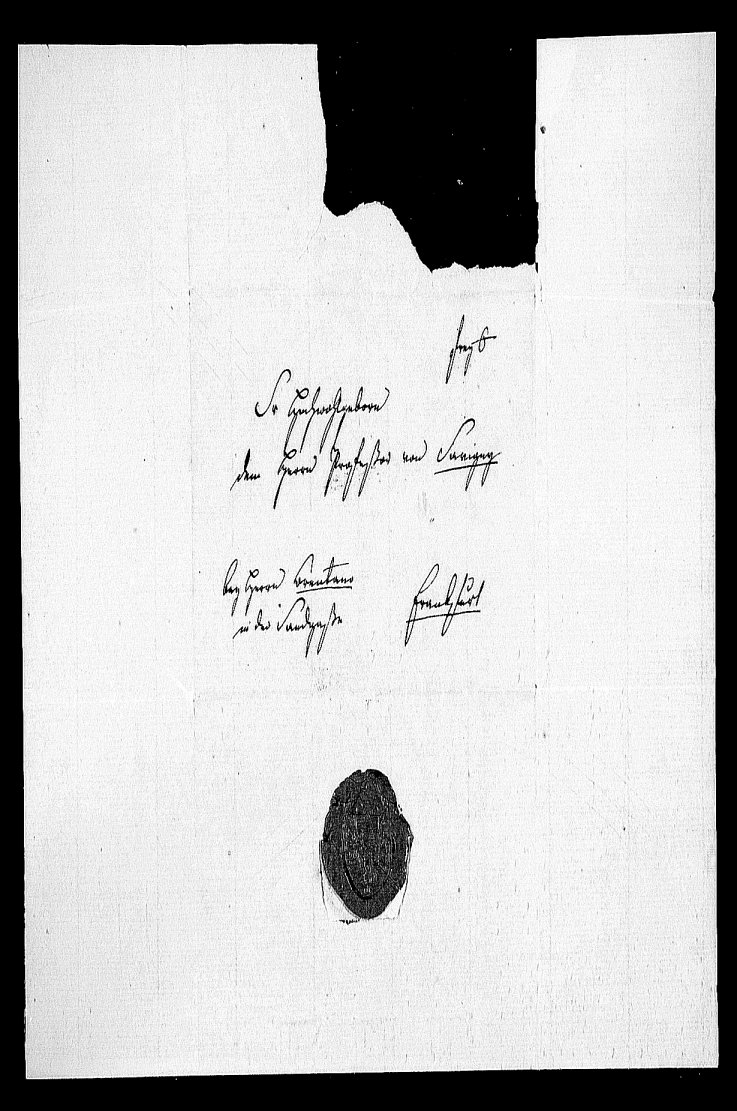 frey
Sr Hochwohlgeborn
dem Herrn Professor von Savigny
bey Herrn Brentano
in der Sandgasse
Frankfurt